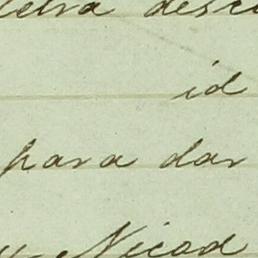 letra desc
id
para dar
y Nicod